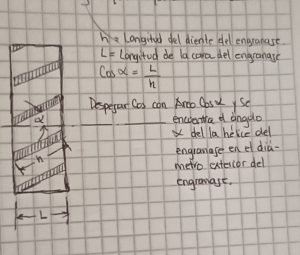 h = Longitud del diente del engranaje
L = Longitud de la cara del engranaje
Cos α = L / h
Despejar Cos con Arco Cos α y se
encuentra el ángulo
α del la hélice del
engranaje en el diá-
metro exterior del
engranaje.
α
h
L